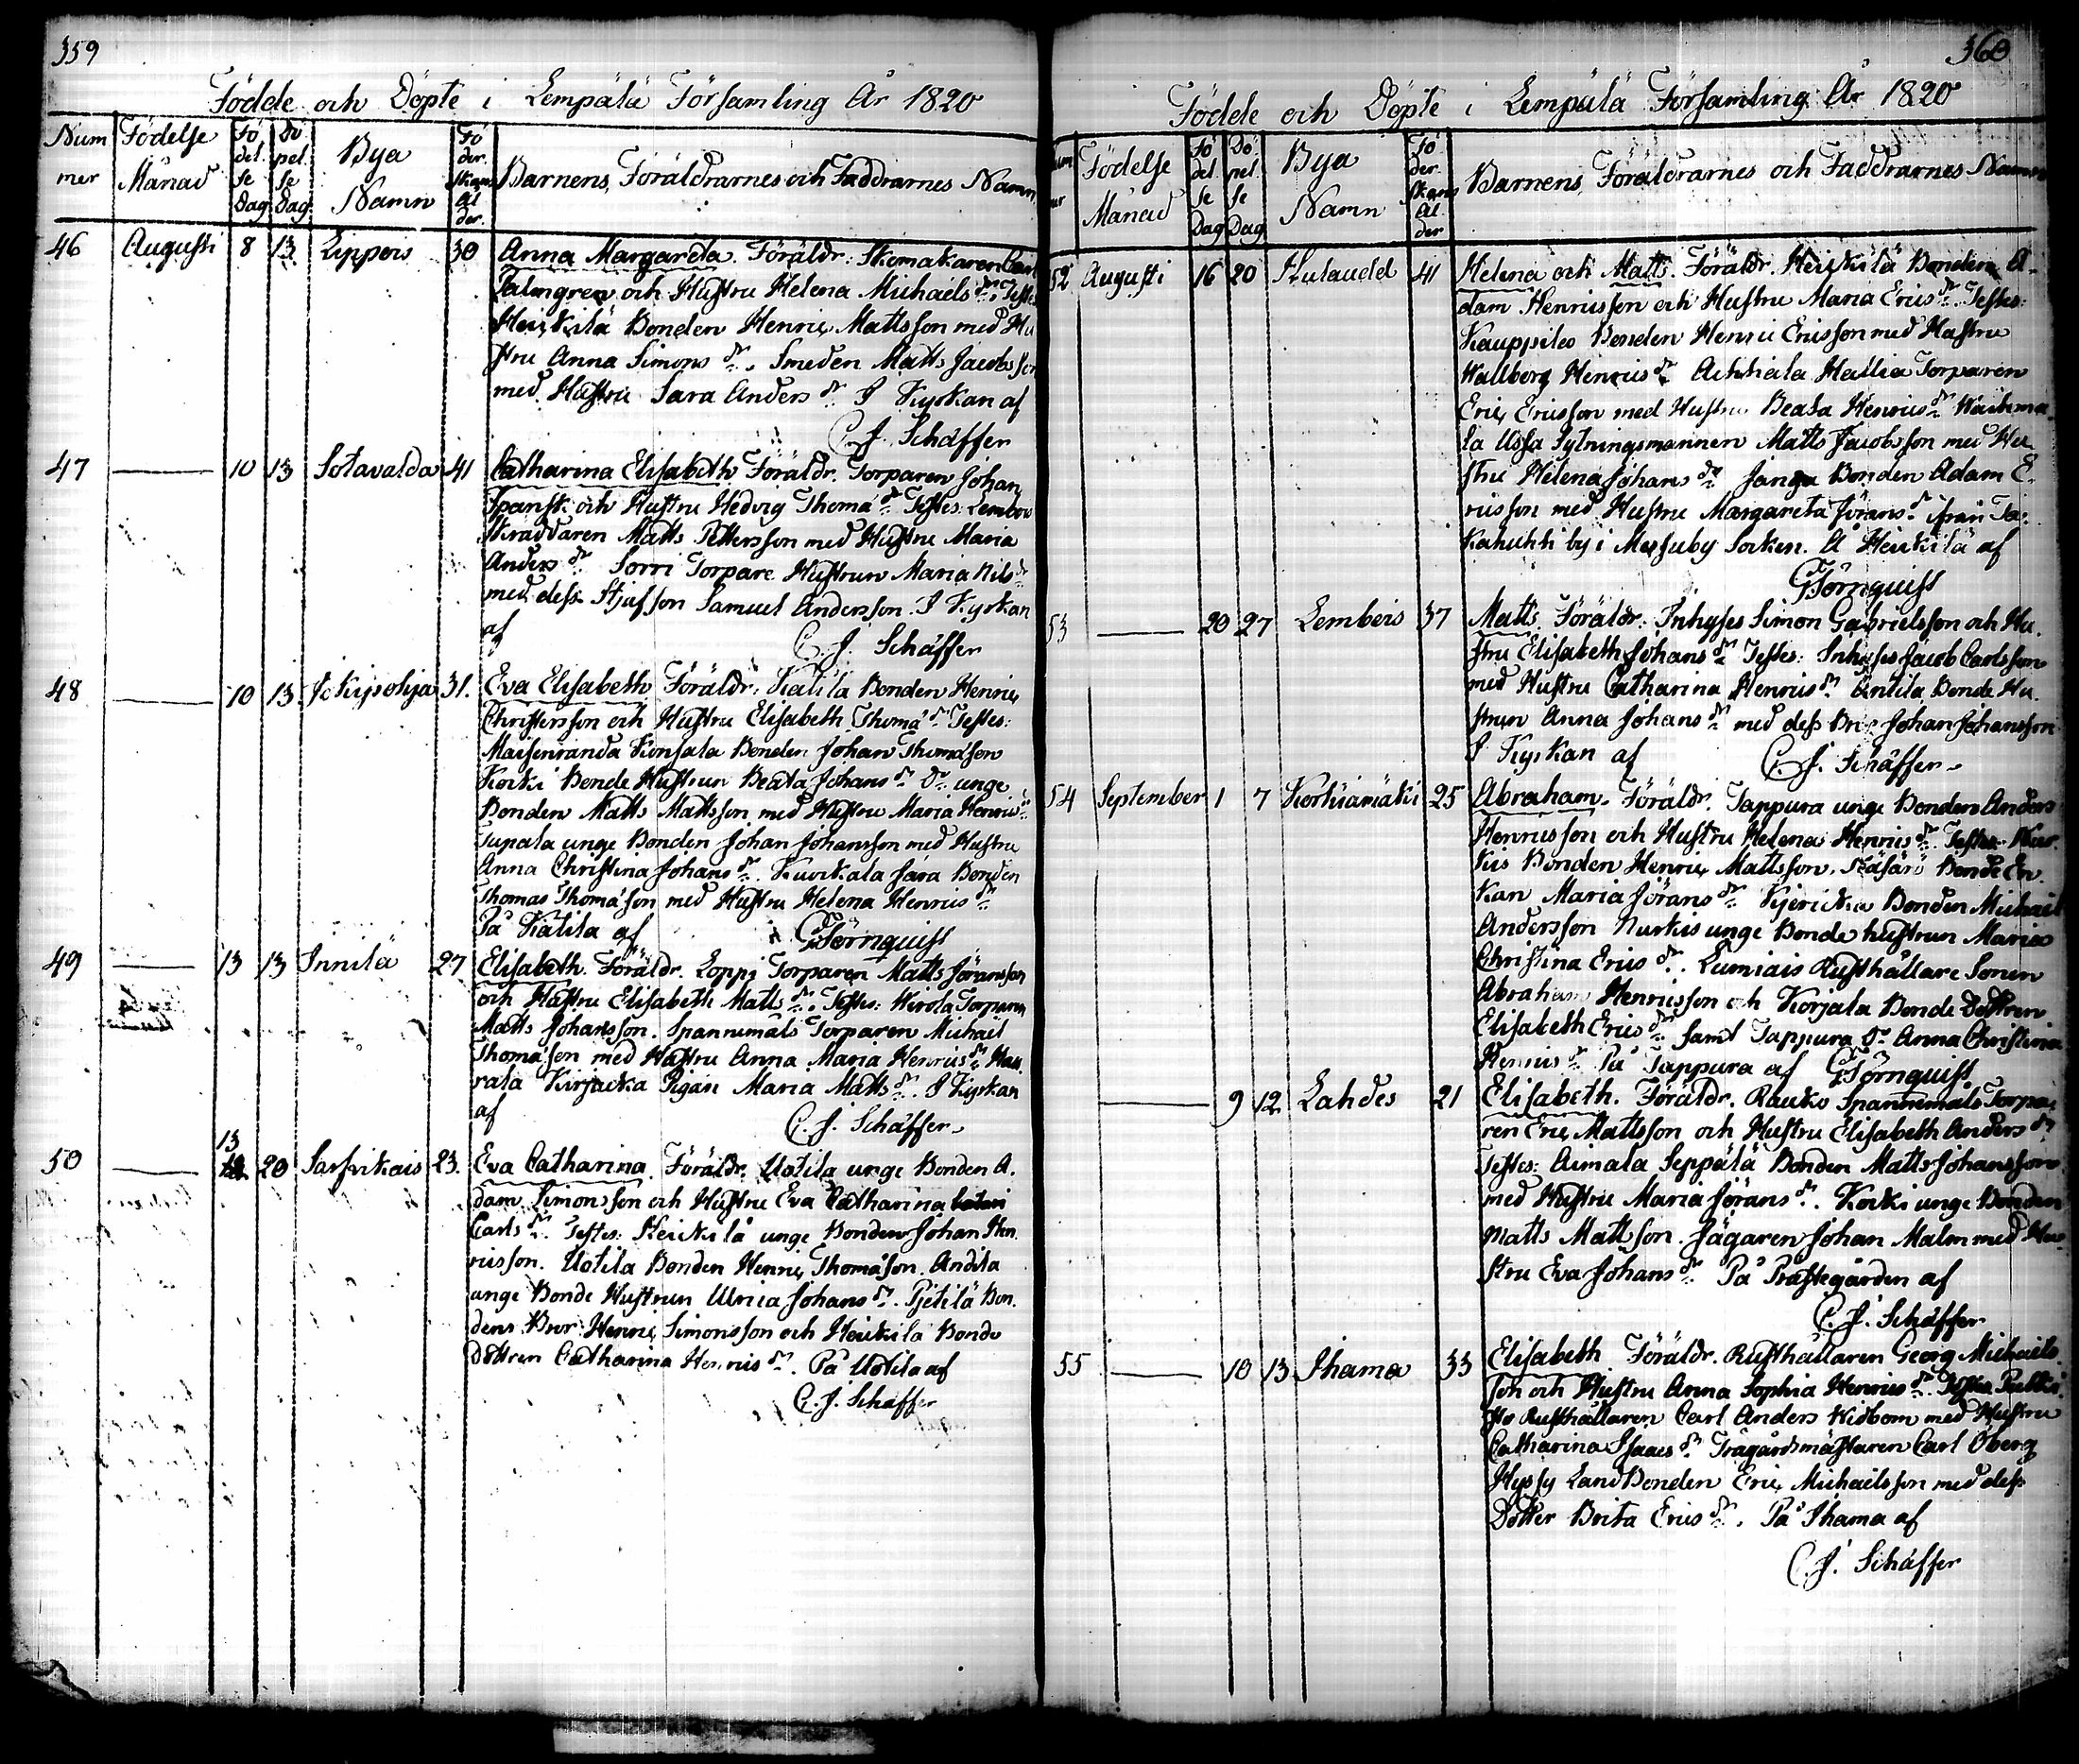 359
Födde och Döpte i Lempälä Församling År 1820
Num
mer
Födelse
Månad
Fö
del
se
Dag
Dö
pel
se
Dag
Bya
Namn
Fö
der
skans
Ål
der.
Barnens, Föräldrarnes och Faddrarnes Namn
46 Augusti 8 13 Lippois 30 Anna Margareta Föräldr: Skomakaren Carl
Palmgren och Hustru Helena Michaels dr. Testes
Heickilä Bonden Henric Mattsson med Hu
stru Anna Simons dr. Smeden Matts Jacobsson
med Hustru Sara Anders dr I Kyrkan af
C. J. Schäffer
47 10 13 Sotavalda 41 Catharina Elisabeth Föräldr. Torparen Johan
Spansk och Hustru Hedvig Thoma dr Testes: Lembois
Skräddaren Matts Pettersson med Hustru Maria
Anders dr Sorri Torpare Hustrun Maria Nils dr
med dess Stjufson Samuel Andersson. I Kyrkan
af
C. J. Schäffer
48 10 13 Jokipohja 31. Eva Elisabeth Föräldr. Katila Bonden Henric
Christersson och Hustru Elisabeth Thoma dr Testes:
Maisenranda Konsala Bonden Johan Thomasson
Korki Bonde Hustrun Beata Johans dr Do unge
Bonden Matts Mattsson med Hustru Maria Henrics dr
Tupala unge Bonden Johan Johansson med Hustru
Anna Christina Johans dr. Kurikala Jara Bonden
Thomas Thomasson med Hustru Helena Henrics dr
På Katila af GTörnquist
49 13 13 Innilä 27 Elisabeth. Föräldr. Loppi Torparen Matts Jöransson
och Hustru Elisabeth Matts dr. Testes: Hirola Torparen
Matts Johansson. Spannemåls Torparen Michael
Thomasson med Hustru Anna Maria Henrics dr Hau
rala Kirjacka Pigan Maria Matts dr. I Kyrkan
af
C. J. Schäffer
13
50 20 Sarfvikais 23. Eva Catharina. Föräldr. Uotila unge Bonden A.
dam Simonsson och Hustru Eva Catharina
Carls dr. Testes: Heickilä unge Bonden Johan Hen
ricsson. Uotila Bonden Henric Thomasson. Andila
unge Bonde Hustrun Ulrica Johans dr. Pjetilä Bon.
dens Bror Henric Simonsson och Heickilä Bonde
dottren Catharina Henrics dr. På Uotila af
C. J. Schäffer
360
Födde och Döpte i Lempälä Församling År 1820
Födelse
Månad
Fö
del
se
Dag
Dö
pel
se
Dag
Bya
Namn
Fö
der
skans
Ål
der
Barnens, Föräldrarnes och Faddrarnes Namn
52 Augusti 16 20 Hulaudd 41 Helena och Matts. Föräldr. Heickilä Bonden A-
dam Henricsson och Hustru Maria Erics dr. Testes:
Kauppila Bonden Henric Ericsson med Hustru
Wallborg Henrics dr. Achtiala Hallia Torparen
Eric Ericsson med Hustru Beata Henrics dr.
la Ussa Sytningsmannen Matts Jacobsson med Hu
stru Helena Johans dr. Bonden Adam E.
ricsson med Hustru Margareta Jörans dr ifrån Ta
kahuhti by i Messuby Socken. Å Heickilä af
GTörnquist
53 20 27 Lembois 37 Matts. Föräldr: Inhyses Simon Gabrielsson och Hu.
stru Elisabeth Johans dr Testes: Inhyses Jacob Carlsson
med Hustru Catharina Henrics dr Antila Bonde Hu
strun Anna Johans dr med dess Bror Johan Johansson
I Kyrkan af C. J. Schäffer
54 September 1 7 Korkiamäki 25 Abraham. Föräldr. Tappura unge Bonden Anders
Henricsson och Hustru Helena Henrics dr. Testes: Nur
kis Bonden Henric Mattsson. Bonde En.
kan Maria Jörans dr Bonden Michael
Andersson Nurkis unge Bonde hustrun Maria
Christina Erics dr. Lumiais Rusthållare Sonen
Abraham Henricsson och Korjala Bonde Dottren
Elisabeth Erics dr. samt Tappura Do Anna Christina
Henrics dr På Tappura af GTörnquist
9 12 Lahdes 21 Elisabeth. Föräldr. Rauko Spannemåls Torpa
ren Eric Mattsson och Hustru Elisabeth Anders dr
Testes: Aimala Seppälä Bonden Matts Johansson
med Hustru Maria Jörans dr. Korki unge Bonden
Matts Mattsson. Jägaren Johan Malm med Hu
stru Eva Johans dr. På Prästegården af
C. J. Schäffer
55 10 13 Ihama 33 Elisabeth. Föräldr. Rusthållaren Georg Michaels
son och Hustru Anna Sophia Henrics dr. Testes
Rusthållaren Carl Anders Widbom med Hustru
Catharina Isaacs dr Trägårdsmästaren Carl Öberg
Hyssy Landbonden Eric Michaelsson med dess
Dotter Brita Erics dr. På Ihama af
C. J. Schäffer